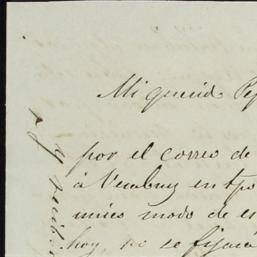 Mi querido Pep
por el correo de
à Veracruz en tpo
unico modo de es
hoy, no se fijara